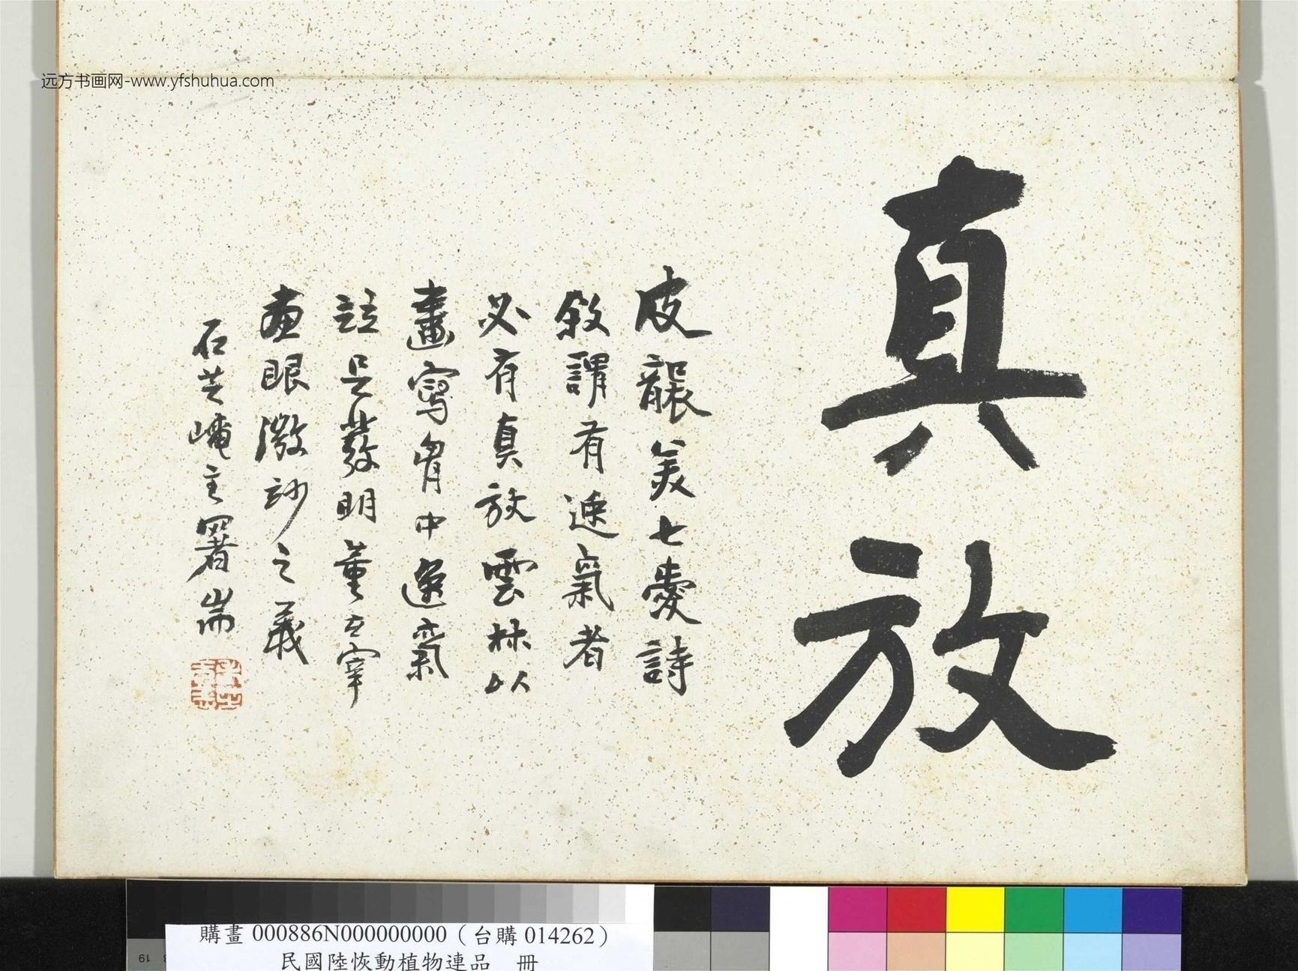 远方书画网-www.yfshuhua.com
真放
皮襲美七愛詩
敘謂有逸氣者
必有真放雲林以
畫寫胷中逸氣
語足發明董玄宰
畫眼微玅之義
石芝崦主署耑
購畫 000886N000000000（台購 014262）
民國陸恢動植物連品 冊
19